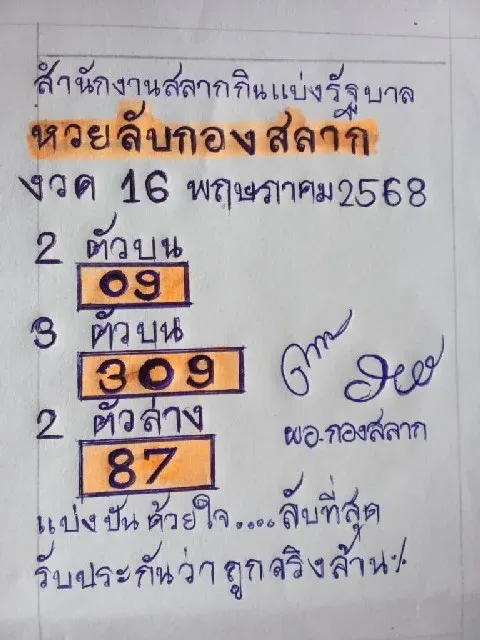 สำนักงานสลากกินแบ่งรัฐบาล
หวยลับกองสลาก
งวด 16 พฤษภาคม 2568
2 ตัวบน
09
3 ตัวบน
309
2 ตัวล่าง
87
ผอ.กองสลาก
แบ่งปันด้วยใจ....ลับที่สุด
รับประกันว่าถูกจริงล้าน%